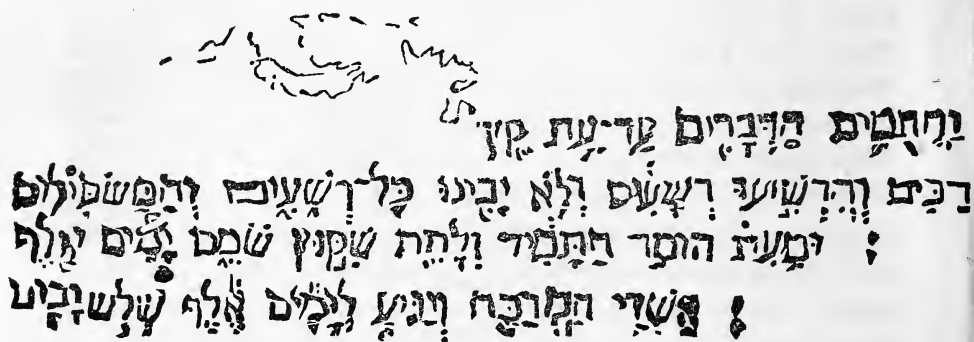 וַחֲתֻמִים הַדְּבָרִים עַד־עֵת קֵץ׃
רַבִּים וְהִרְשִׁיעוּ רְשָׁעִים וְלֹא יָבִינוּ כָּל־רְשָׁעִים וְהַמַּשְׂכִּילִים
: וּמֵעֵת הוּסַר הַתָּמִיד וְלָתֵת שִׁקּוּץ שֹׁמֵם יָמִים אֶלֶף
: אַשְׁרֵי הַמְחַכֶּה וְיַגִּיעַ לְיָמִים אֶלֶף שְׁלֹשׁ